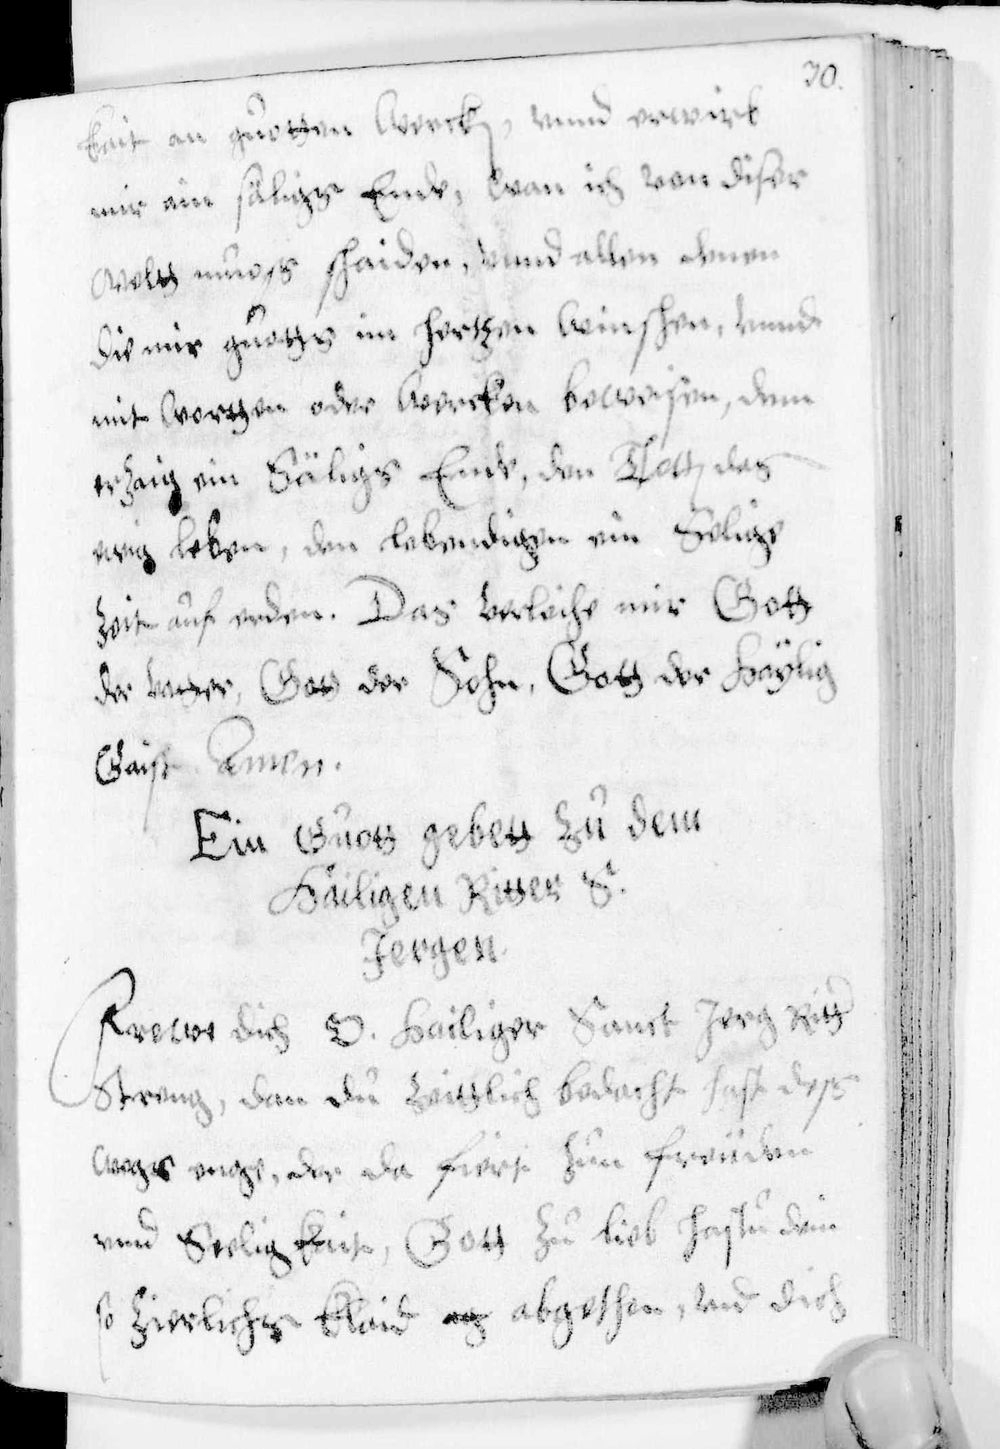 70.
kait an guotten Werck, vnnd erwirb
mir ein säligs Ende, Wan ich von diser
Weltt muoss shaiden, vnnd allen denen
die mir guotts im hertzen Winshen, vnnd
mit Wortten oder Wercken beweisen, dem
erzaig ein Säligs Ende, den Tott das
ewig leben, den lebendigen ein Selige
Zeit auf erden. Das verleihe mir Gott
der vatter, Gott der Sohn, Gott der Haÿlig
Gaist Amen.
Ein Guott gebett Zu dem
Häiligen Ritter S.
Jergen.
Frewe dich O. Hailiger Sanct Jerg Ritter
Streng, dan du Zeittlich bedacht hast dess
Wegs enge, der da fiert Zun freüden
vnd Seeligkait, Gott Zu lieb hastu dein
so Zierlichs klaid abgethon, vnd dich